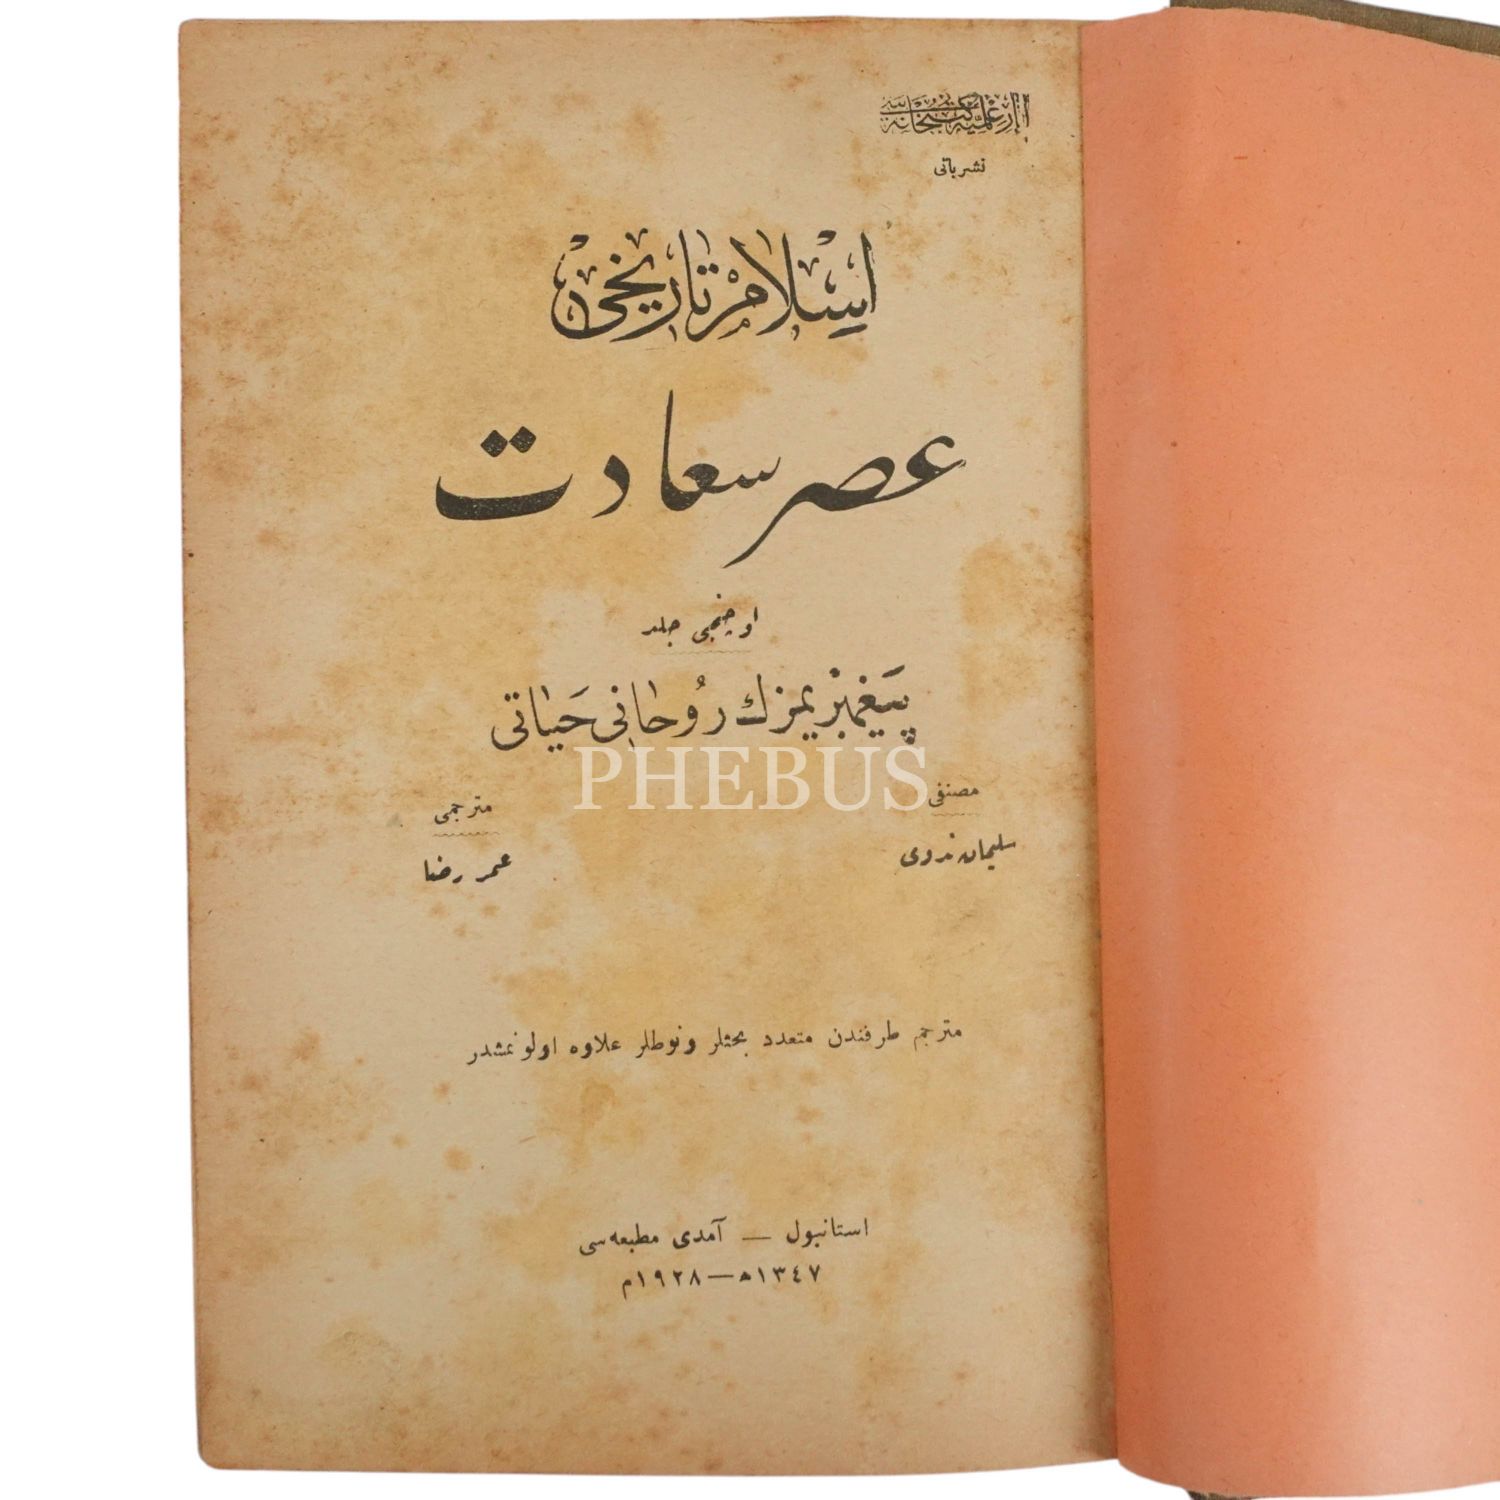 آثار علمیه کتبخانه سی
نشریاتی
اسلام تاریخی
عصر سعادت
اوچنجی جلد
پیغمبریمزك روحانی حیاتی
PHEBUS
مصنفی
سلیمان ندوی
مترجمی
عمر رضا
مترجم طرفندن متعدد بحثلر ونوطلر علاوه اولونمشدر
استانبول — آمدی مطبعه‌سی
١٣٤٧ھ — ١٩٢٨م